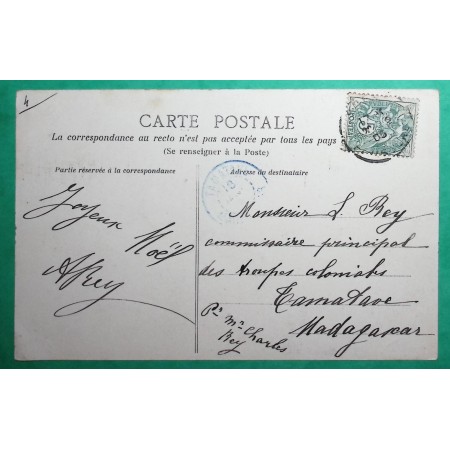 4
CARTE POSTALE
La correspondance au recto n'est pas acceptée par tous les pays
(Se renseigner à la Poste)
Partie réservée à la correspondance
Adresse du destinataire
Joyeux Noël
ARey
Monsieur L. Rey
commissaire principal
des troupes coloniales
Tamatave
Madagascar
Pr Mr Charles
Rey